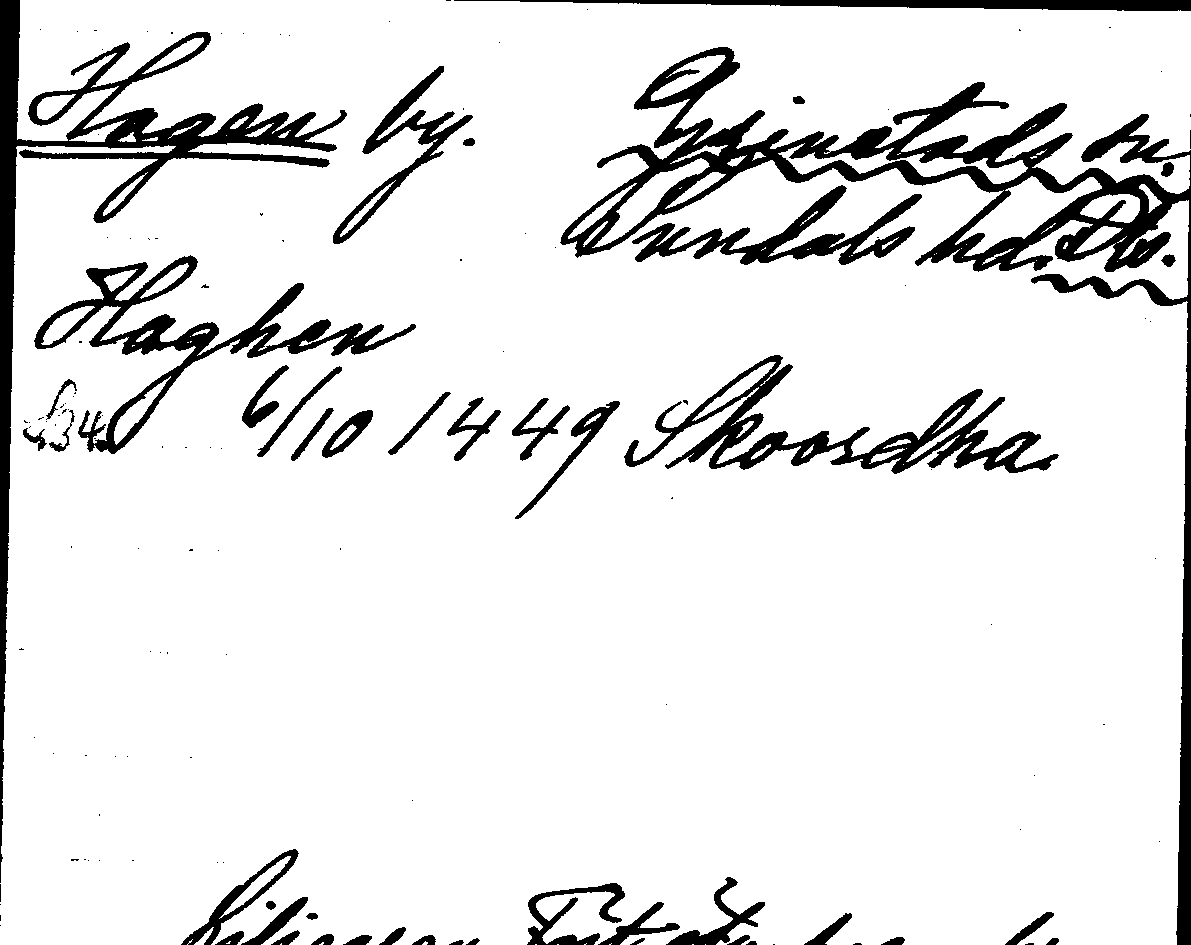 Hagen by. Grinstads sn.
Sundals hd. Dls.
Haghen
6/10 1449 Skoordha.